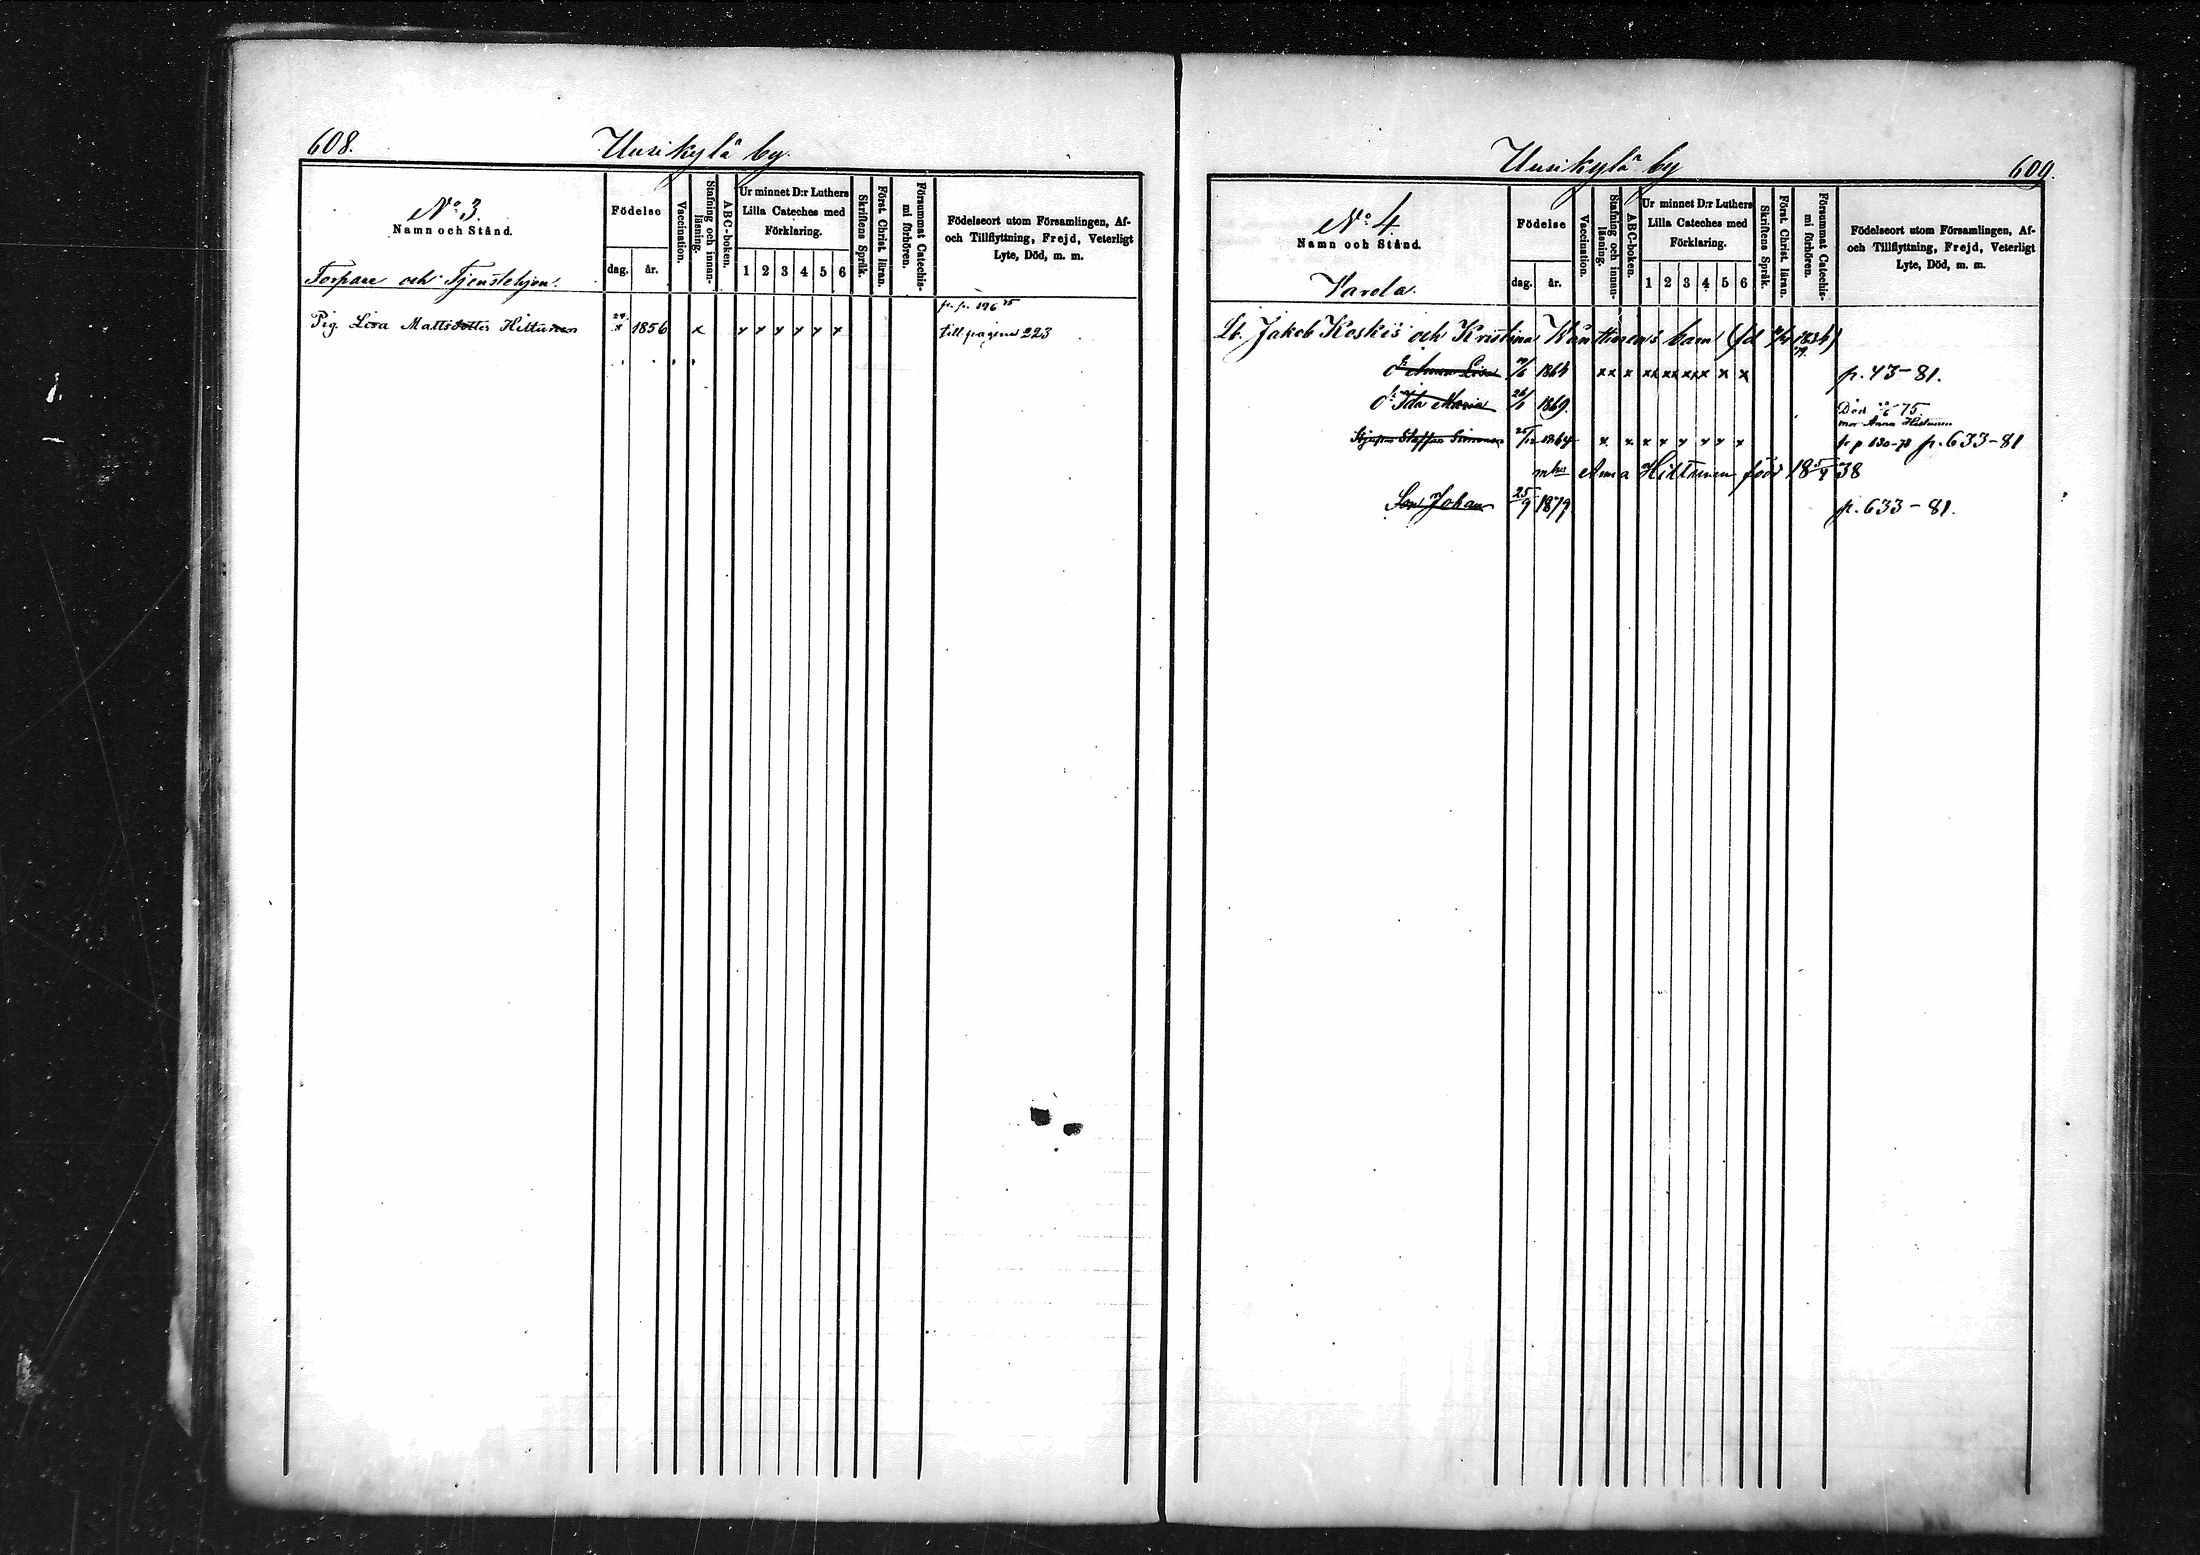 608.
Uusikylä by.
No 3.
Namn och Stånd.
Torpare och Tjenstehjon.
Födelse
dag. år.
Vaccination.
Stafning och innan-
läsning.
ABC-boken.
Ur minnet D:r Luthers
Lilla Cateches med
Förklaring.
1 2 3 4 5 6
Skriftens Språk.
Först. Christ. läran.
Försummat Catechis-
mi förhören.
Födelseort utom Församlingen, Af-
och Tillflyttning, Frejd, Veterligt
Lyte, Död, m. m.
fr. p. 196 75
Pig. Lisa Mattsdotter Hiltunen 1856 x x x x x x x till pagina 223
Uusikylä by
609.
No 4.
Namn och Stånd.
Varola.
Födelse
dag. år.
Vaccination.
Stafning och innan-
läsning.
ABC-boken.
Ur minnet D:r Luthers
Lilla Cateches med
Förklaring.
1 2 3 4 5 6
Skriftens Språk.
Först. Christ. läran.
Försummat Catechis-
mi förhören.
Födelseort utom Församlingen, Af-
och Tillflyttning, Frejd, Veterligt
Lyte, Död, m. m.
Lb. Jakob Koskis och Kristina barn (fd
d. Anna Lisa 1864 xx x xx xx xx x x x p. 43-81.
d. Ida Maria 1869. Död 75.
mor Anna Hiltunen
Staffan Simonsson 25/12 1864 x x x x x x x x fr p 130-78 p. 633-81
Anna Hiltunen född 18 38
Son Johan 25/9 1879 p. 633-81.